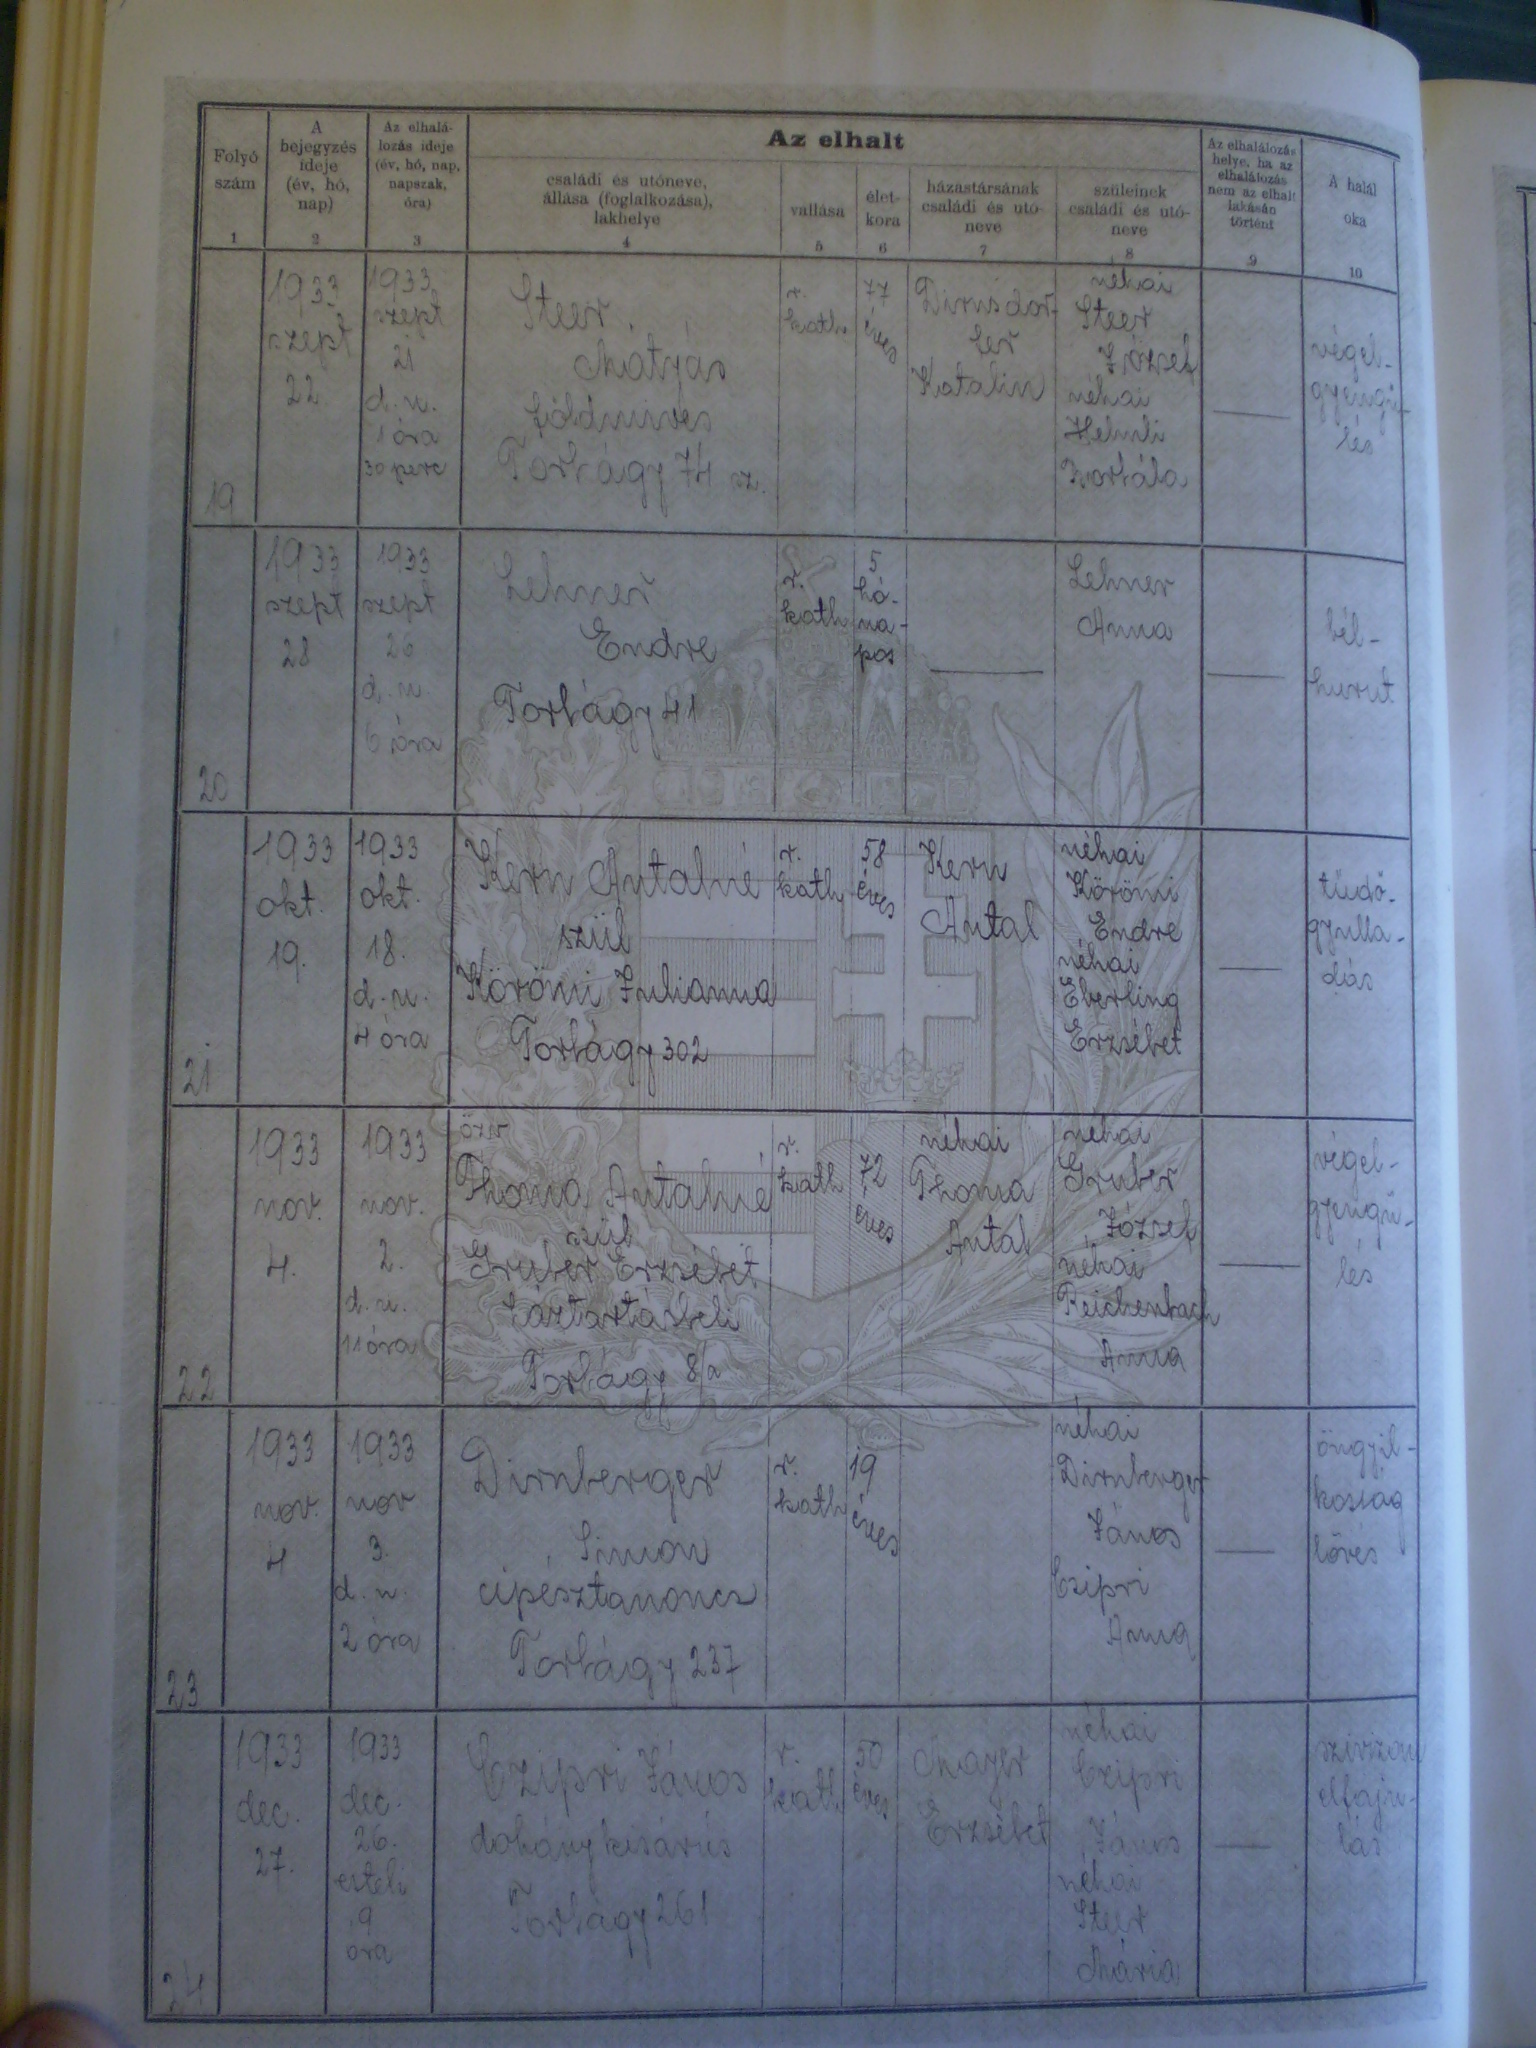 Folyó
szám
1
A
bejegyzés
ideje
(év, hó,
nap)
2
Az elhalá-
lozás ideje
(év, hó, nap,
napszak,
óra)
3
Az elhalt
családi és utóneve,
állása (foglalkozása),
lakhelye
4
vallása
5
élet-
kora
6
házastársának
családi és utó-
neve
7
szüleinek
családi és utó-
neve
8
Az elhalálozás
helye, ha az
elhalálozás
nem az elhalt
lakásán
történt
9
A halál
oka
10
19
1933
szept
22
1933
szept
21
d. u.
1 óra
30 perc
Steer
Mátyás
földmives
Torbágy 74 sz.
r.
kath.
77
éves
Katalin
néhai
Steer
József
néhai
Borbála
végel-
gyengü-
lés
20
1933
szept
28
1933
szept
26
d. u.
6 óra
Lehner
Endre
Torbágy 41
r.
kath
5
hó-
na-
pos
Lehner
Anna
bél-
hurut
21
1933
okt.
19.
1933
okt.
18.
d. u.
4 óra
Kern Antalné
szül
Körömi Julianna
Torbágy 302
r.
kath
58
éves
Kern
Antal
néhai
Körömi
Endre
néhai
Eberling
Erzsébet
tüdő-
gyulla-
dás
22
1933
nov.
4.
1933
nov.
2.
d. u.
11 óra
özv
Thoma Antalné
szül
Gruber Erzsébet
háztartásbeli
Torbágy 8/a
r.
kath
72
éves
néhai
Thoma
Antal
néhai
Gruber
József
néhai
Reichenbach
Anna
végel-
gyengü-
lés
23
1933
nov.
4
1933
nov
3.
d. u.
2 óra
Dirnberger
Simon
cipésztanoncz
Torbágy 237
r.
kath
19
éves
néhai
Dirnberger
János
Czipri
Anna
öngyil-
kosság
lövés
24
1933
dec.
27.
1933
dec.
26.
esteli
9
óra
Czipri János
dohánykisárús
Torbágy 261
r.
kath
50
éves
Mayer
Erzsébet
néhai
Czipri
János
néhai
Steer
Mária
szivizom
elfaju-
lás